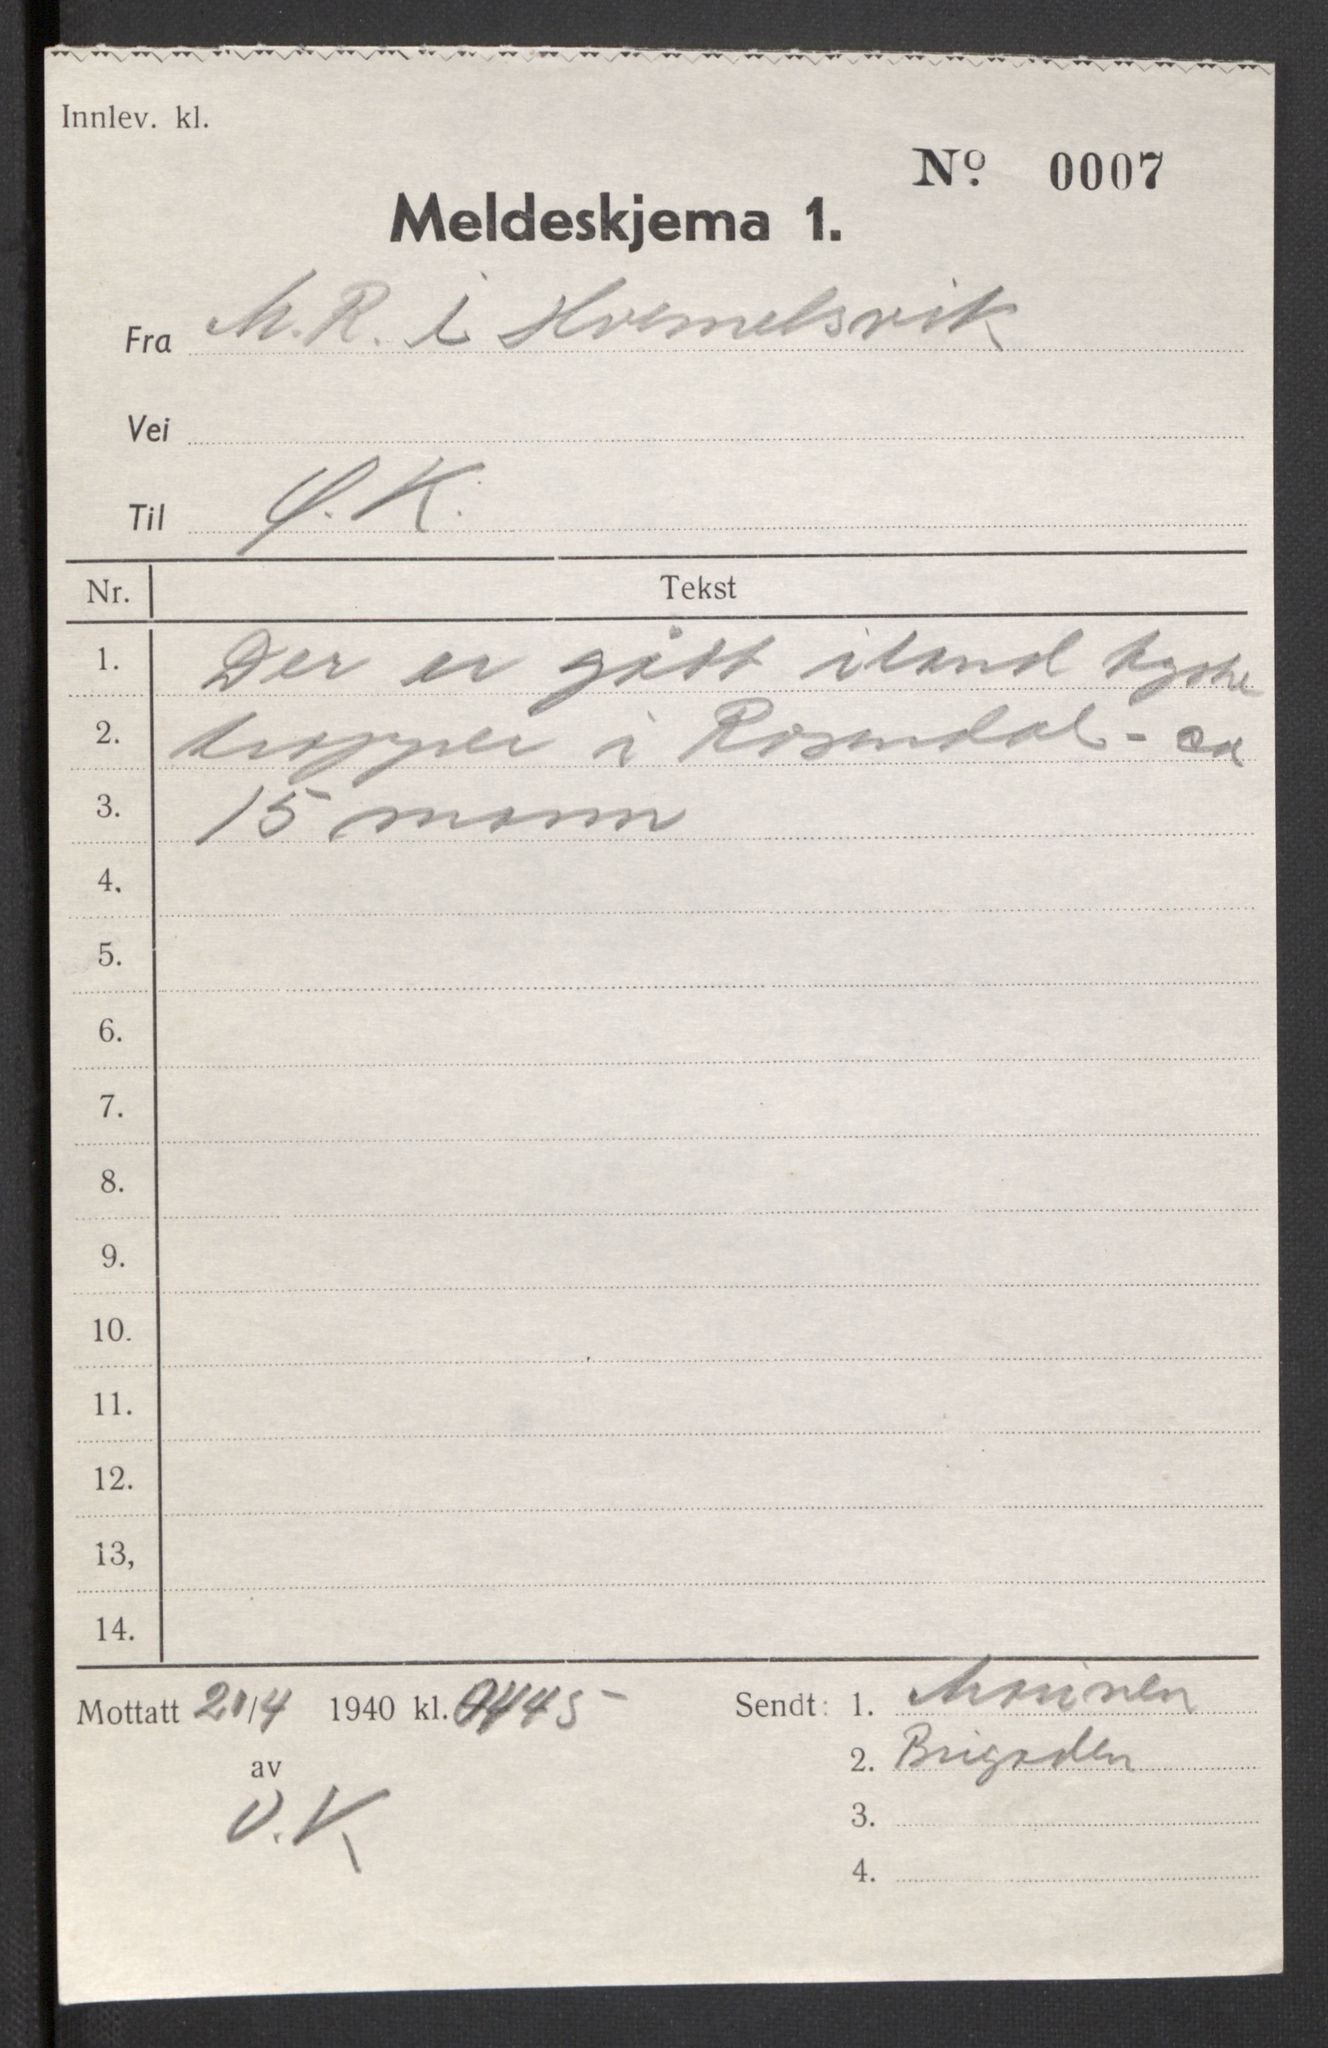 Innlev. kl.
Nº. 0007
Meldeskjema 1.
Fra M.R. i
Vei
Til Ø.K.
Nr. Tekst
1. Der er gått iland tyske
2. tropper i Rosendal - ca
3. 15 mann
4.
5.
6.
7.
8.
9.
10.
11.
12.
13,
14.
Mottatt 20/4 1940 kl. 0445
Sendt: 1. Marinen
av
2. Brigaden
O.K.
3.
4.